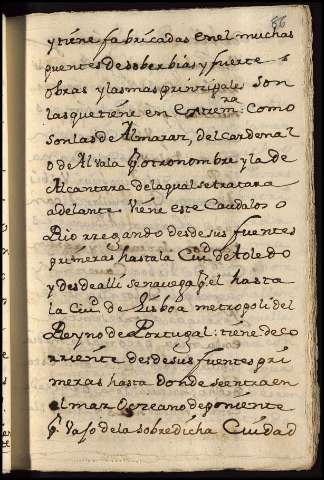 86
y tiene fabricadas en el muchas
puentes de soberbias y fuertes
obras y las mas prinçipales son
las que tiene en Estremra: como
son las de Almaraz, del cardenal
o de Alvala pr otro nombre y la de
Alcantara de la qual se tratara
adelante. Viene este Caudaloso
Rio rregando desde sus fuentes
primeras hasta la Ciud de toledo
y desde alli se navega pr el hasta
la Ciud de Lisboa metropoli del
Reyno de Portugal: tiene de co
rriente desde sus fuentes pri
meras hasta donde se entra en
el mar Oceano de poniente
pr vaso de la sobredicha Ciudad